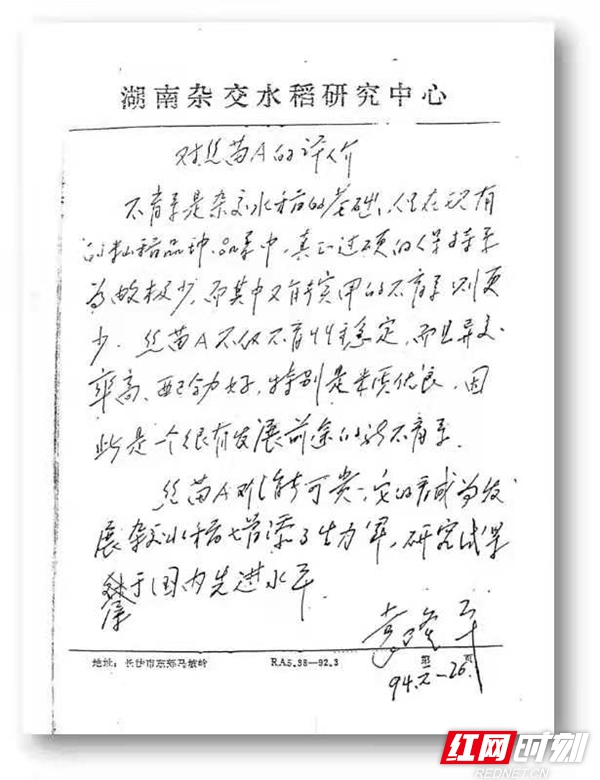 湖南杂交水稻研究中心
对丝苗A的评价
不育系是杂交水稻的基础、但在现有
的籼稻品种、品系中，真正过硬的保持系
为数极少，而其中又有实用的不育系则更
少。丝苗A不仅不育性稳定，而且异交
率高、配合力好，特别是米质优良，因
此是一个很有发展前途的新不育系。
丝苗A难能可贵，它的育成为发
展杂交水稻增添了生力军，研究成果
属于国内先进水平
袁隆平
地址：长沙市东郊马坡岭 RA5.38—92.3 第 页
94.
红网时刻
REDNET.CN